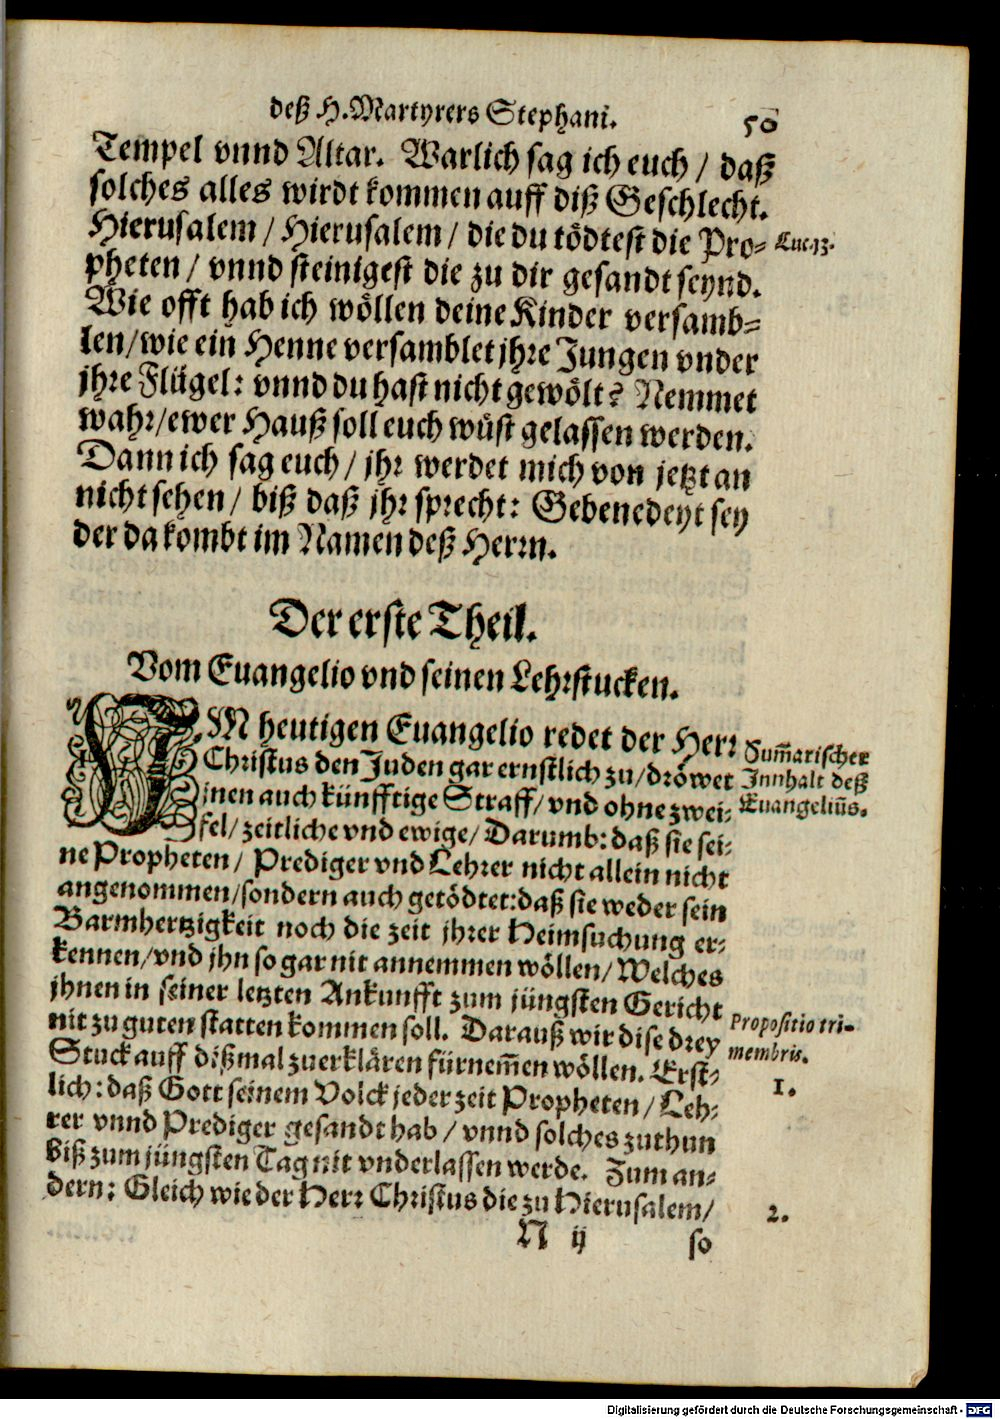 deß H. Martyrers Stephani. 50
Tempel vnnd Altar. Warlich sag ich euch / daß
solches alles wirdt kommen auff diß Geschlecht.
Hierusalem / Hierusalem / die du tödtest die Pro-
Luc. 13.
pheten / vnnd steinigest die zu dir gesandt seynd.
Wie offt hab ich wöllen deine Kinder versamb-
len/wie ein Henne versamblet jhre Jungen vnder
jhre Flügel: vnnd du hast nicht gewölt? Nemmet
wahr/ewer Hauß soll euch wüst gelassen werden.
Dann ich sag euch / jhr werdet mich von jetzt an
nicht sehen / biß daß jhr sprecht: Gebenedeyt sey
der da kombt im Namen deß Herrn.
Der erste Theil.
Vom Euangelio vnd seinen Lehrstucken.
IM heutigen Euangelio redet der Herr
Christus den Juden gar ernstlich zu/dröwet
jnen auch künfftige Straff/vnd ohne zwei-
fel/zeitliche vnd ewige/Darumb: daß sie sei-
Sum̃arischer
Innhalt deß
Euangeliũs.
ne Propheten / Prediger vnd Lehrer nicht allein nicht
angenommen/sondern auch getödtet:daß sie weder sein
Barmhertzigkeit noch die zeit jhrer Heimsuchung er-
kennen/vnd jhn so gar nit annemmen wöllen/Welches
jhnen in seiner letzten Ankunfft zum jüngsten Gericht
nit zu guten statten kommen soll. Darauß wir dise drey
Stuck auff dißmal zuerklären fürnem̃en wöllen. Erst-
Propositio tri-
membris.
1.
lich: daß Gott seinem Volck jeder zeit Propheten / Leh-
rer vnnd Prediger gesandt hab / vnnd solches zuthun
biß zum jüngsten Tag nit vnderlassen werde. Zum an-
dern: Gleich wie der Herr Christus die zu Hierusalem/
2.
N ij so
Digitalisierung gefördert durch die Deutsche Forschungsgemeinschaft - DFG